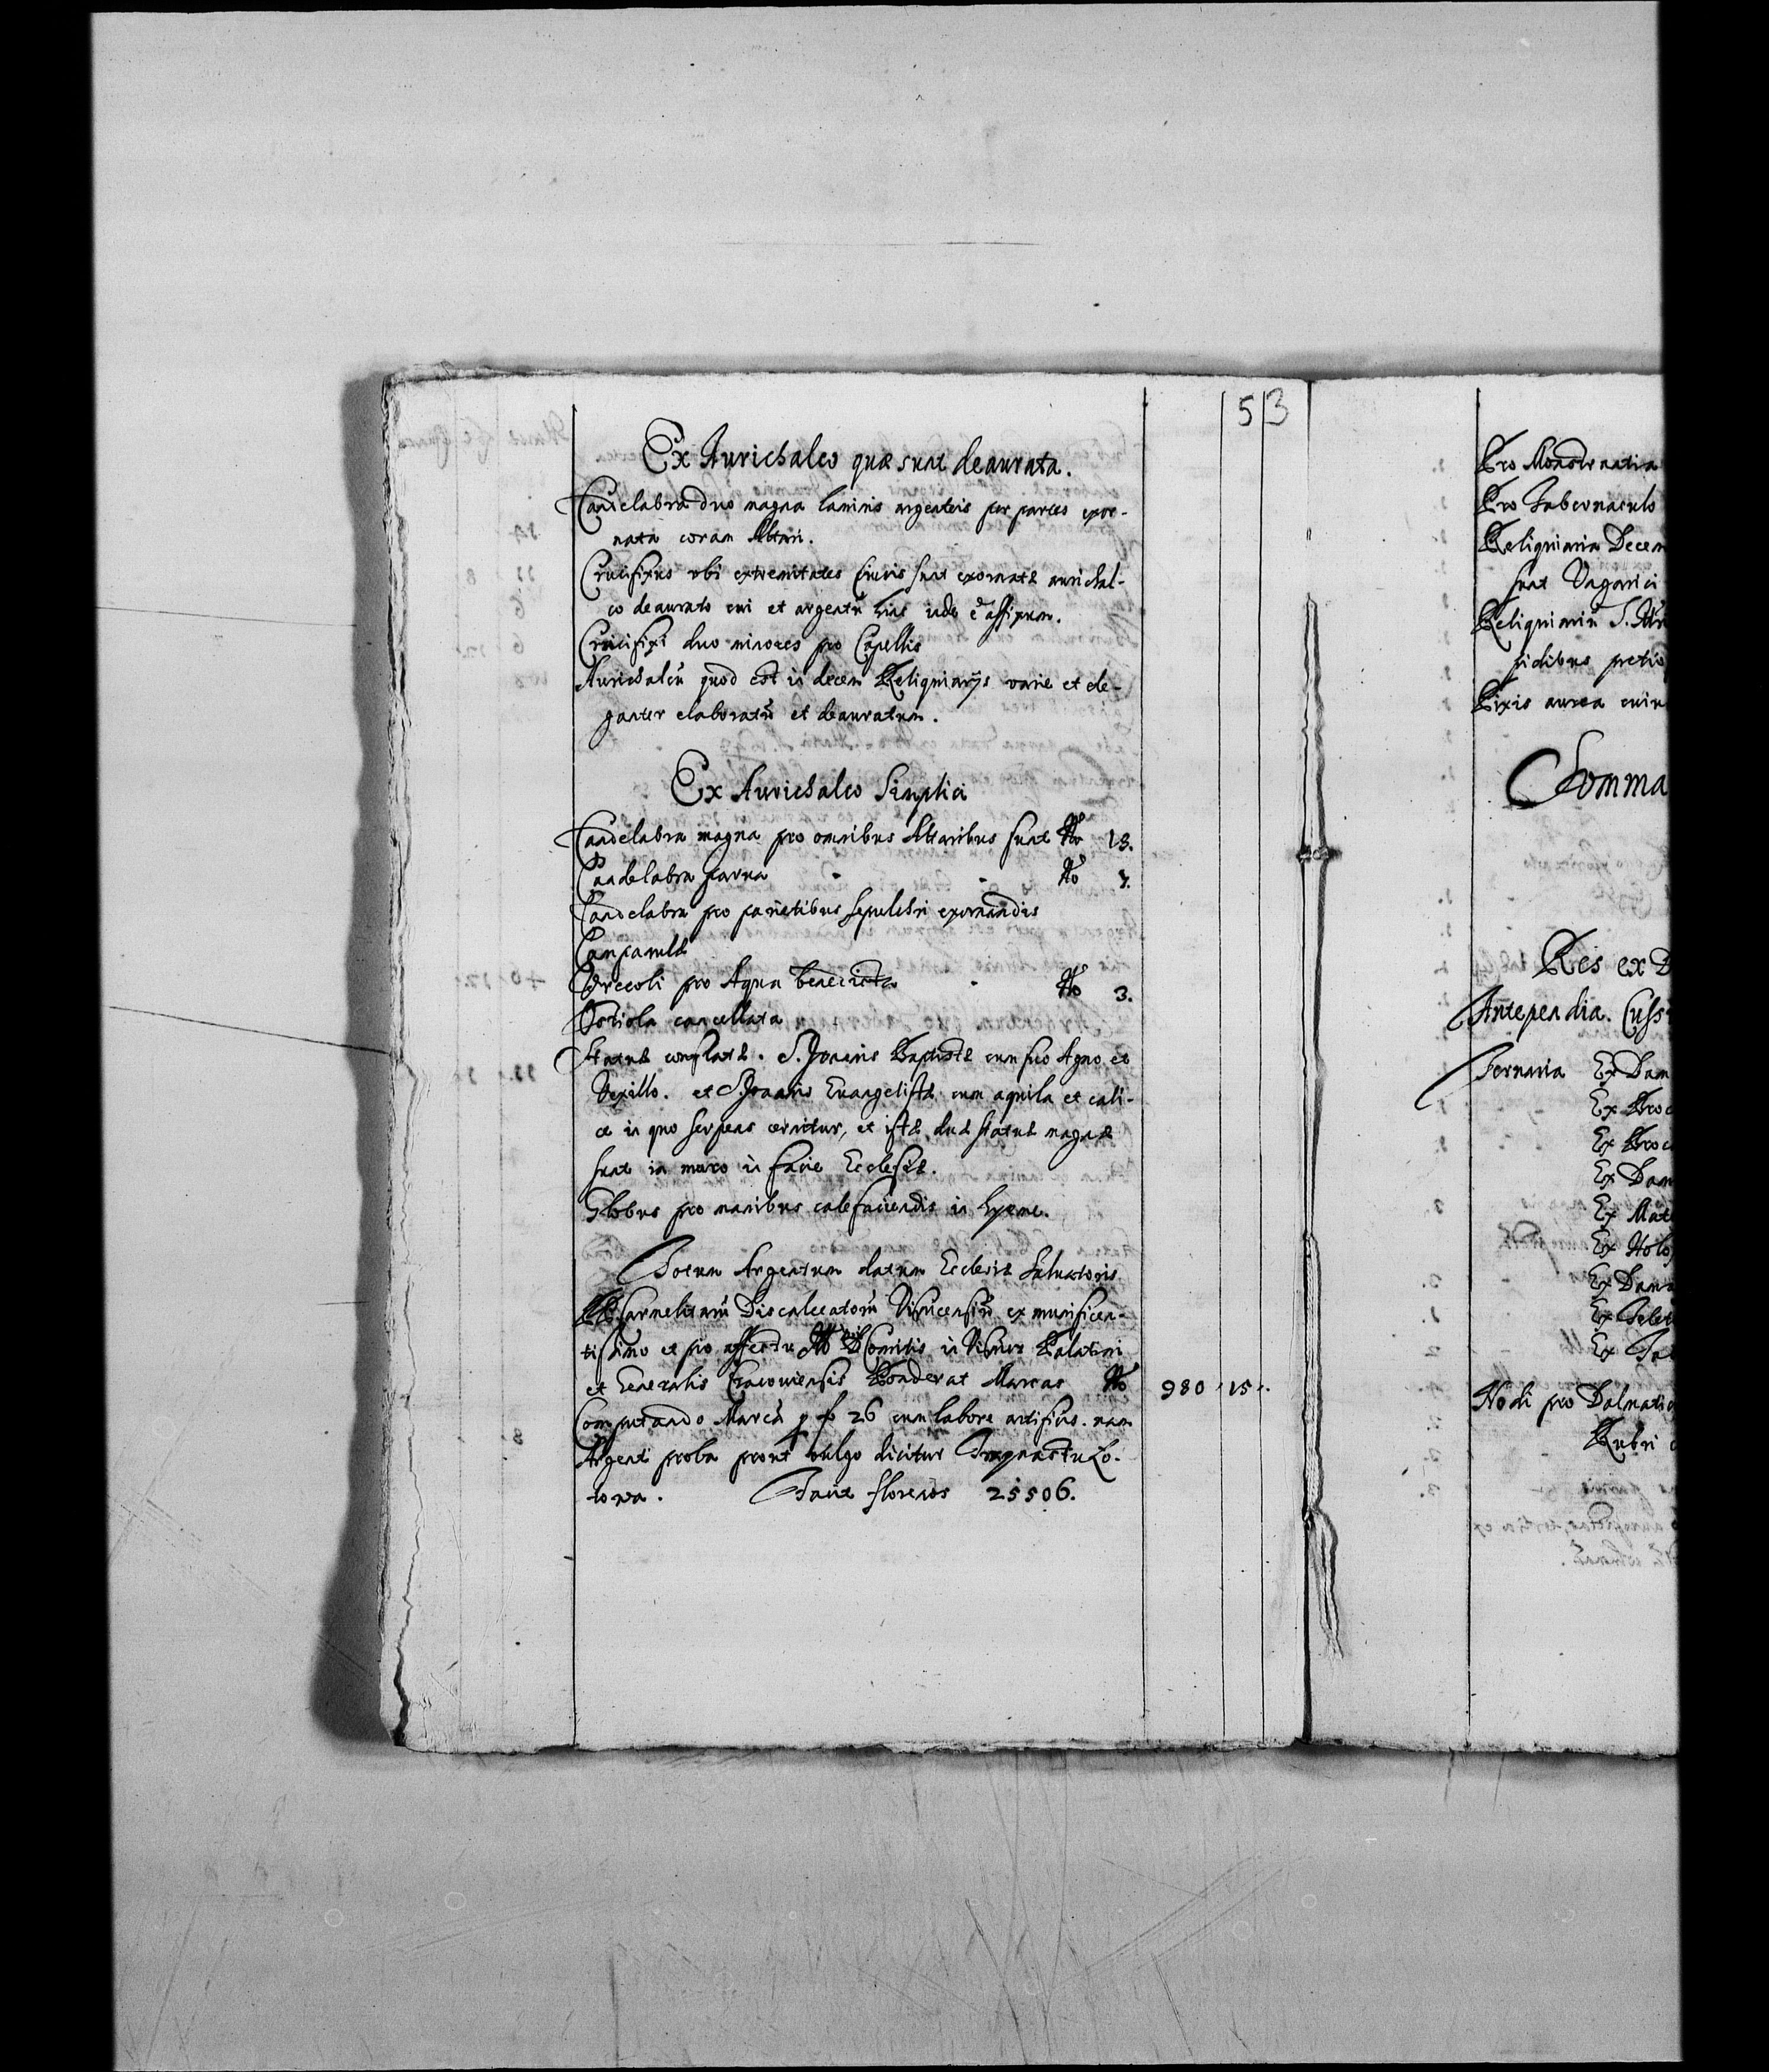 53
Ex Aurichalco quæ sunt deaurata.
Candelabra duo magna laminis argenteis per partes exor-
nata coram Altari.
Crucifixus ubi extremitates Crucis sunt exornatæ aurichal-
co deaurato cui et argentū hinc inde ē affixum.
Crucifixi duo minores pro Capellis
Aurichalcū quod est in decem Reliquiarijs varie et ele-
ganter elaboratū et deauratum.
Ex Aurichalco Simplici
Candelabra magna pro omnibus Altaribus sunt No 18.
Candelabra parva - - No
Candelabra pro parietibus sepulchri exornandis
Campanulæ
Urceoli pro Aqua benedicta - No 3.
Ostiola cancellata
Statuæ conflatæ. S. Joannis Baptistæ cum suo Agno et
Vexillo. et S. Joannis Evangelistæ cum aquila et cali-
ce in quo serpens cernitur, et istæ duæ statuæ magnæ
sunt in muro in facie Ecclesiæ.
Globus pro manibus calefaciendis in hyeme.
Totum Argentum datum Ecclesiæ Salvatoris
PP Carmelitarū Discalceatorū Visnicensiū ex munificen-
tissimo et pio affectu Comitis in Visnicz Palatini
et Generalis Cracoviensis Ponderat Marcas No 980 15
Computando Marcā p fl 26 cum labore artificis. nam
Argenti proba prout vulgo dicitur
towa. Facit florenos 25506.
Pro Monstrantia
Pro Tabernaculo
Reliquiaria Decem
sunt Vngarici
Reliquiariū S.
pidibus pretio
Pixis aurea cum
Summa
Res ex D
Antependia. Cuss
Ternaria Ex Dam
Ex Broc
Ex Broc
Ex Dam
Ex Mat
Ex Holo
Ex Dama
Ex Telet
Ex
Nodi pro Dalmatic
Rubri